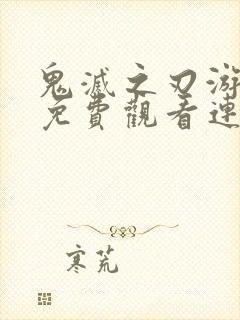 鬼滅之刃游
免費觀看連
寒荒